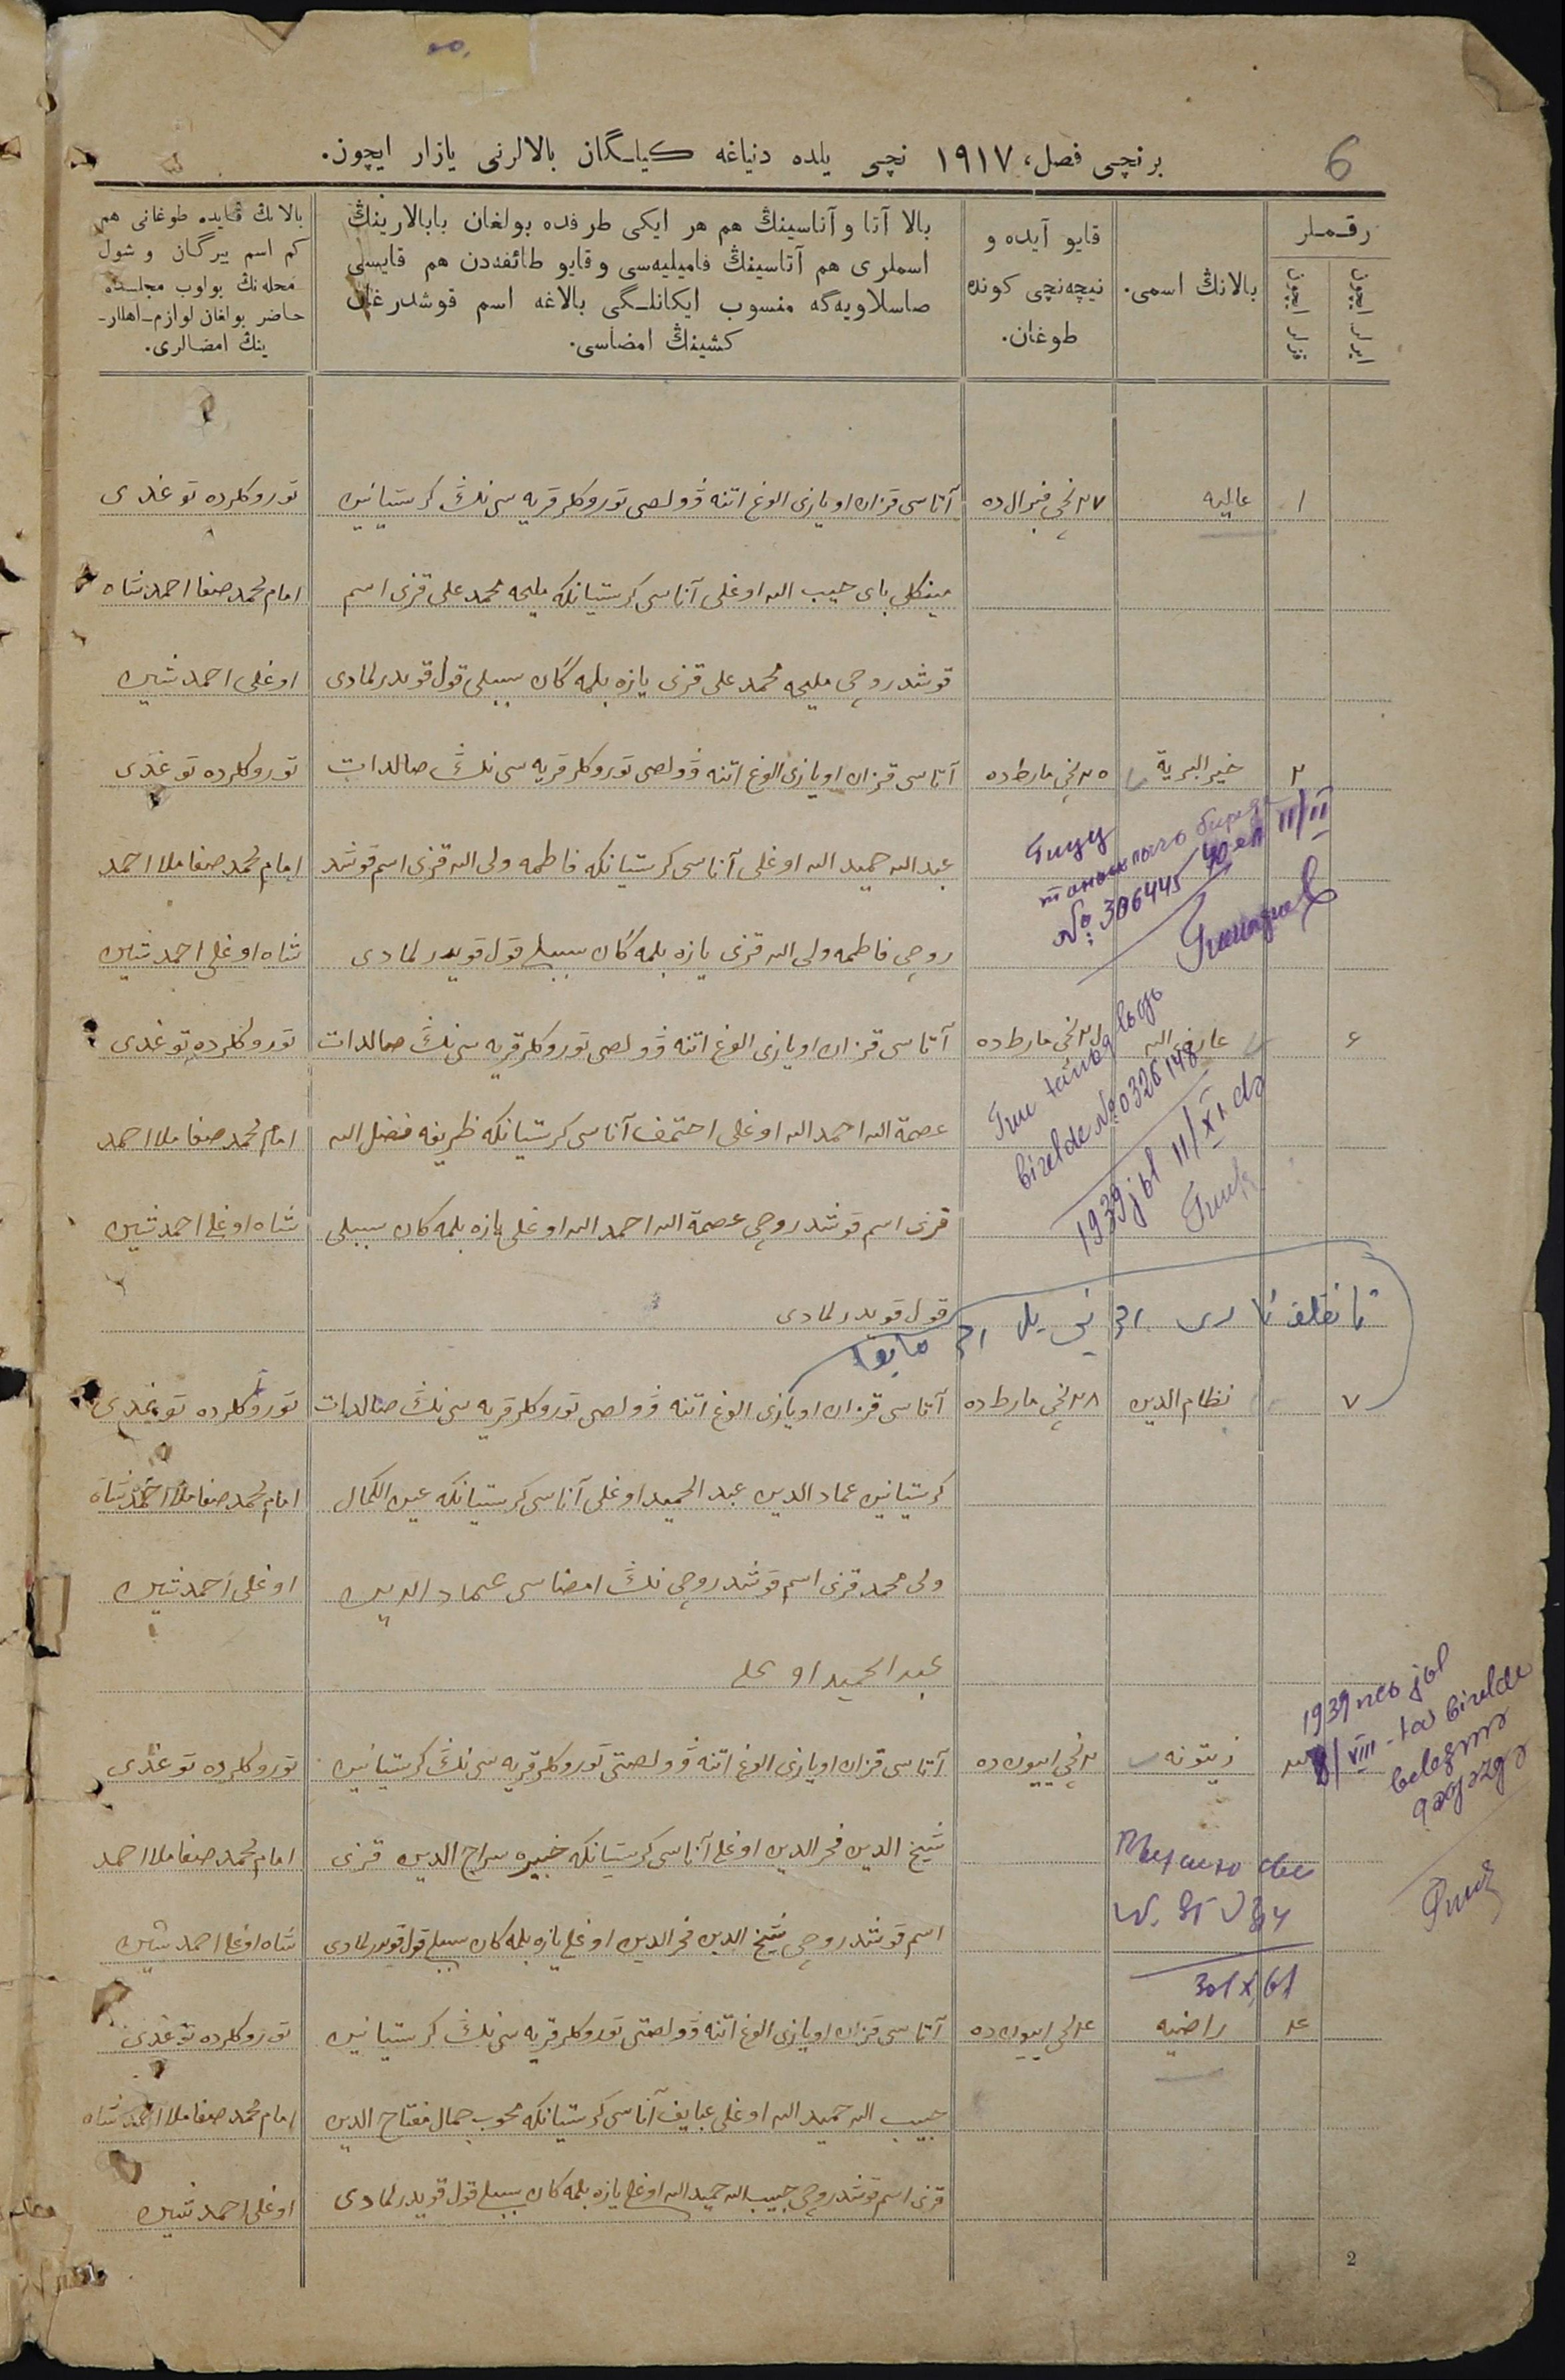 6
برنچی فصل، ١٩١٧ نچی یلده دنیاغه کیلگان بالالرنی یازار ایچون.
رقملر
ایرلر ایچون
قزلر ایچون
بالانڭ اسمی.
قایو آیده و
نیچه‌نچی کونده
طوغان.
بالا آتا و آناسینڭ هم هر ایکی طرفده بولغان بابالارینڭ
اسملری هم آتاسینڭ فامیلیه‌سی و قایو طائفه‌دن هم قایسی
صاسلاویه‌گه منسوب ایکانلگی بالاغه اسم قوشدرغان
کشینڭ امضاسی.
بالانڭ قایده طوغانی هم
کم اسم بیرگان و شول
محله‌نڭ بولوب مجلسده
حاضر بولغان لوازم اهللار
ینڭ امضالری.
١ عالیه ٢٧ نچی فبرال ده آتاسی قزان اویازی الوغ اتنه ڤولصی توروکلر قریه سی نڭ کرستیانین توروکلرده توغدی
مینکلی بای حبیب الله اوغلی آناسی کرستیانکه ملیحه محمد علی قزی اسم امام محمد صفا احمد شاه
قوشدروچی ملیحه محمد علی قزی یازه بلمه گان سببلی قول قویدرلمادی اوغلی احمد شین
٢ خیر البریة ٢٥ نچی مارط ده آتاسی قزان اویازی الوغ اتنه ڤولصی توروکلر قریه سی نڭ صالدات توروکلرده توغدی
عبد الله حمید الله اوغلی آناسی کرستیانکه فاطمه ولی الله قزی اسم قوشد امام محمد صفا ملا احمد
روچی فاطمه ولی الله قزی یازه بلمه گان سببلی قول قویدرلمادی شاه اوغلی احمد شین
№ 306445 40 ел 11/II
٦ عارف الله نچی مارط ده آتاسی قزان اویازی الوغ اتنه ڤولصی توروکلر قریه سی نڭ صالدات توروکلرده توغدی
birelde № 0326148
1939 jьl 11/XI dә
عصمة الله احمد الله اوغلی احتمف آناسی کرستیانکه ظریفه فضل الله امام محمد صفا ملا احمد
قزی اسم قوشدروچی عصمة الله احمد الله اوغلی یازه بلمه کان سببلی شاه اوغلی احمد شین
قول قویدرلمادی
٧ نظام الدین ٢٨ نچی مارط ده آتاسی قزان اویازی الوغ اتنه ڤولصی توروکلر قریه سی نڭ صالدات توروکلرده توغدی
کرستیانین عماد الدین عبد الحمید اوغلی آناسی کرستیانکه عین الکمال امام محمد صفا ملا احمد شاه
ولی محمد قزی اسم قوشدروچی نڭ امضاسی عماد الدین اوغلی احمد شین
عبد الحمید اوغلی
1939 nсь jьl
8/VIII-tә birelde
زیتونه ٢ نچی اییون ده آتاسی قزان اویازی الوغ اتنه ڤولصتی توروکلر قریه سی نڭ کرستیانین توروکلرده توغدی
شیخ الدین فخر الدین اوغلی آناسی کرستیانکه خبیره سراج الدین قزی امام محمد صفا ملا احمد
اسم قوشدروچی شیخ الدین فخر الدین اوغلی یازه بلمه کان سببلی قول قویدرلمادی شاه اوغلی احمد شین
راضیه اییون ده آتاسی قزان اویازی الوغ اتنه ڤولصتی توروکلر قریه سی نڭ کرستیانین توروکلرده توغدی
حبیب الله حمید الله اوغلی عبایف آناسی کرستیانکه محبوب جمال مفتاح الدین امام محمد صفا ملا احمد شاه
قزی اسم قوشدروچی حبیب الله حمید الله اوغلی یازه بلمه کان سببلی قول قویدرلمادی اوغلی احمد شین
2